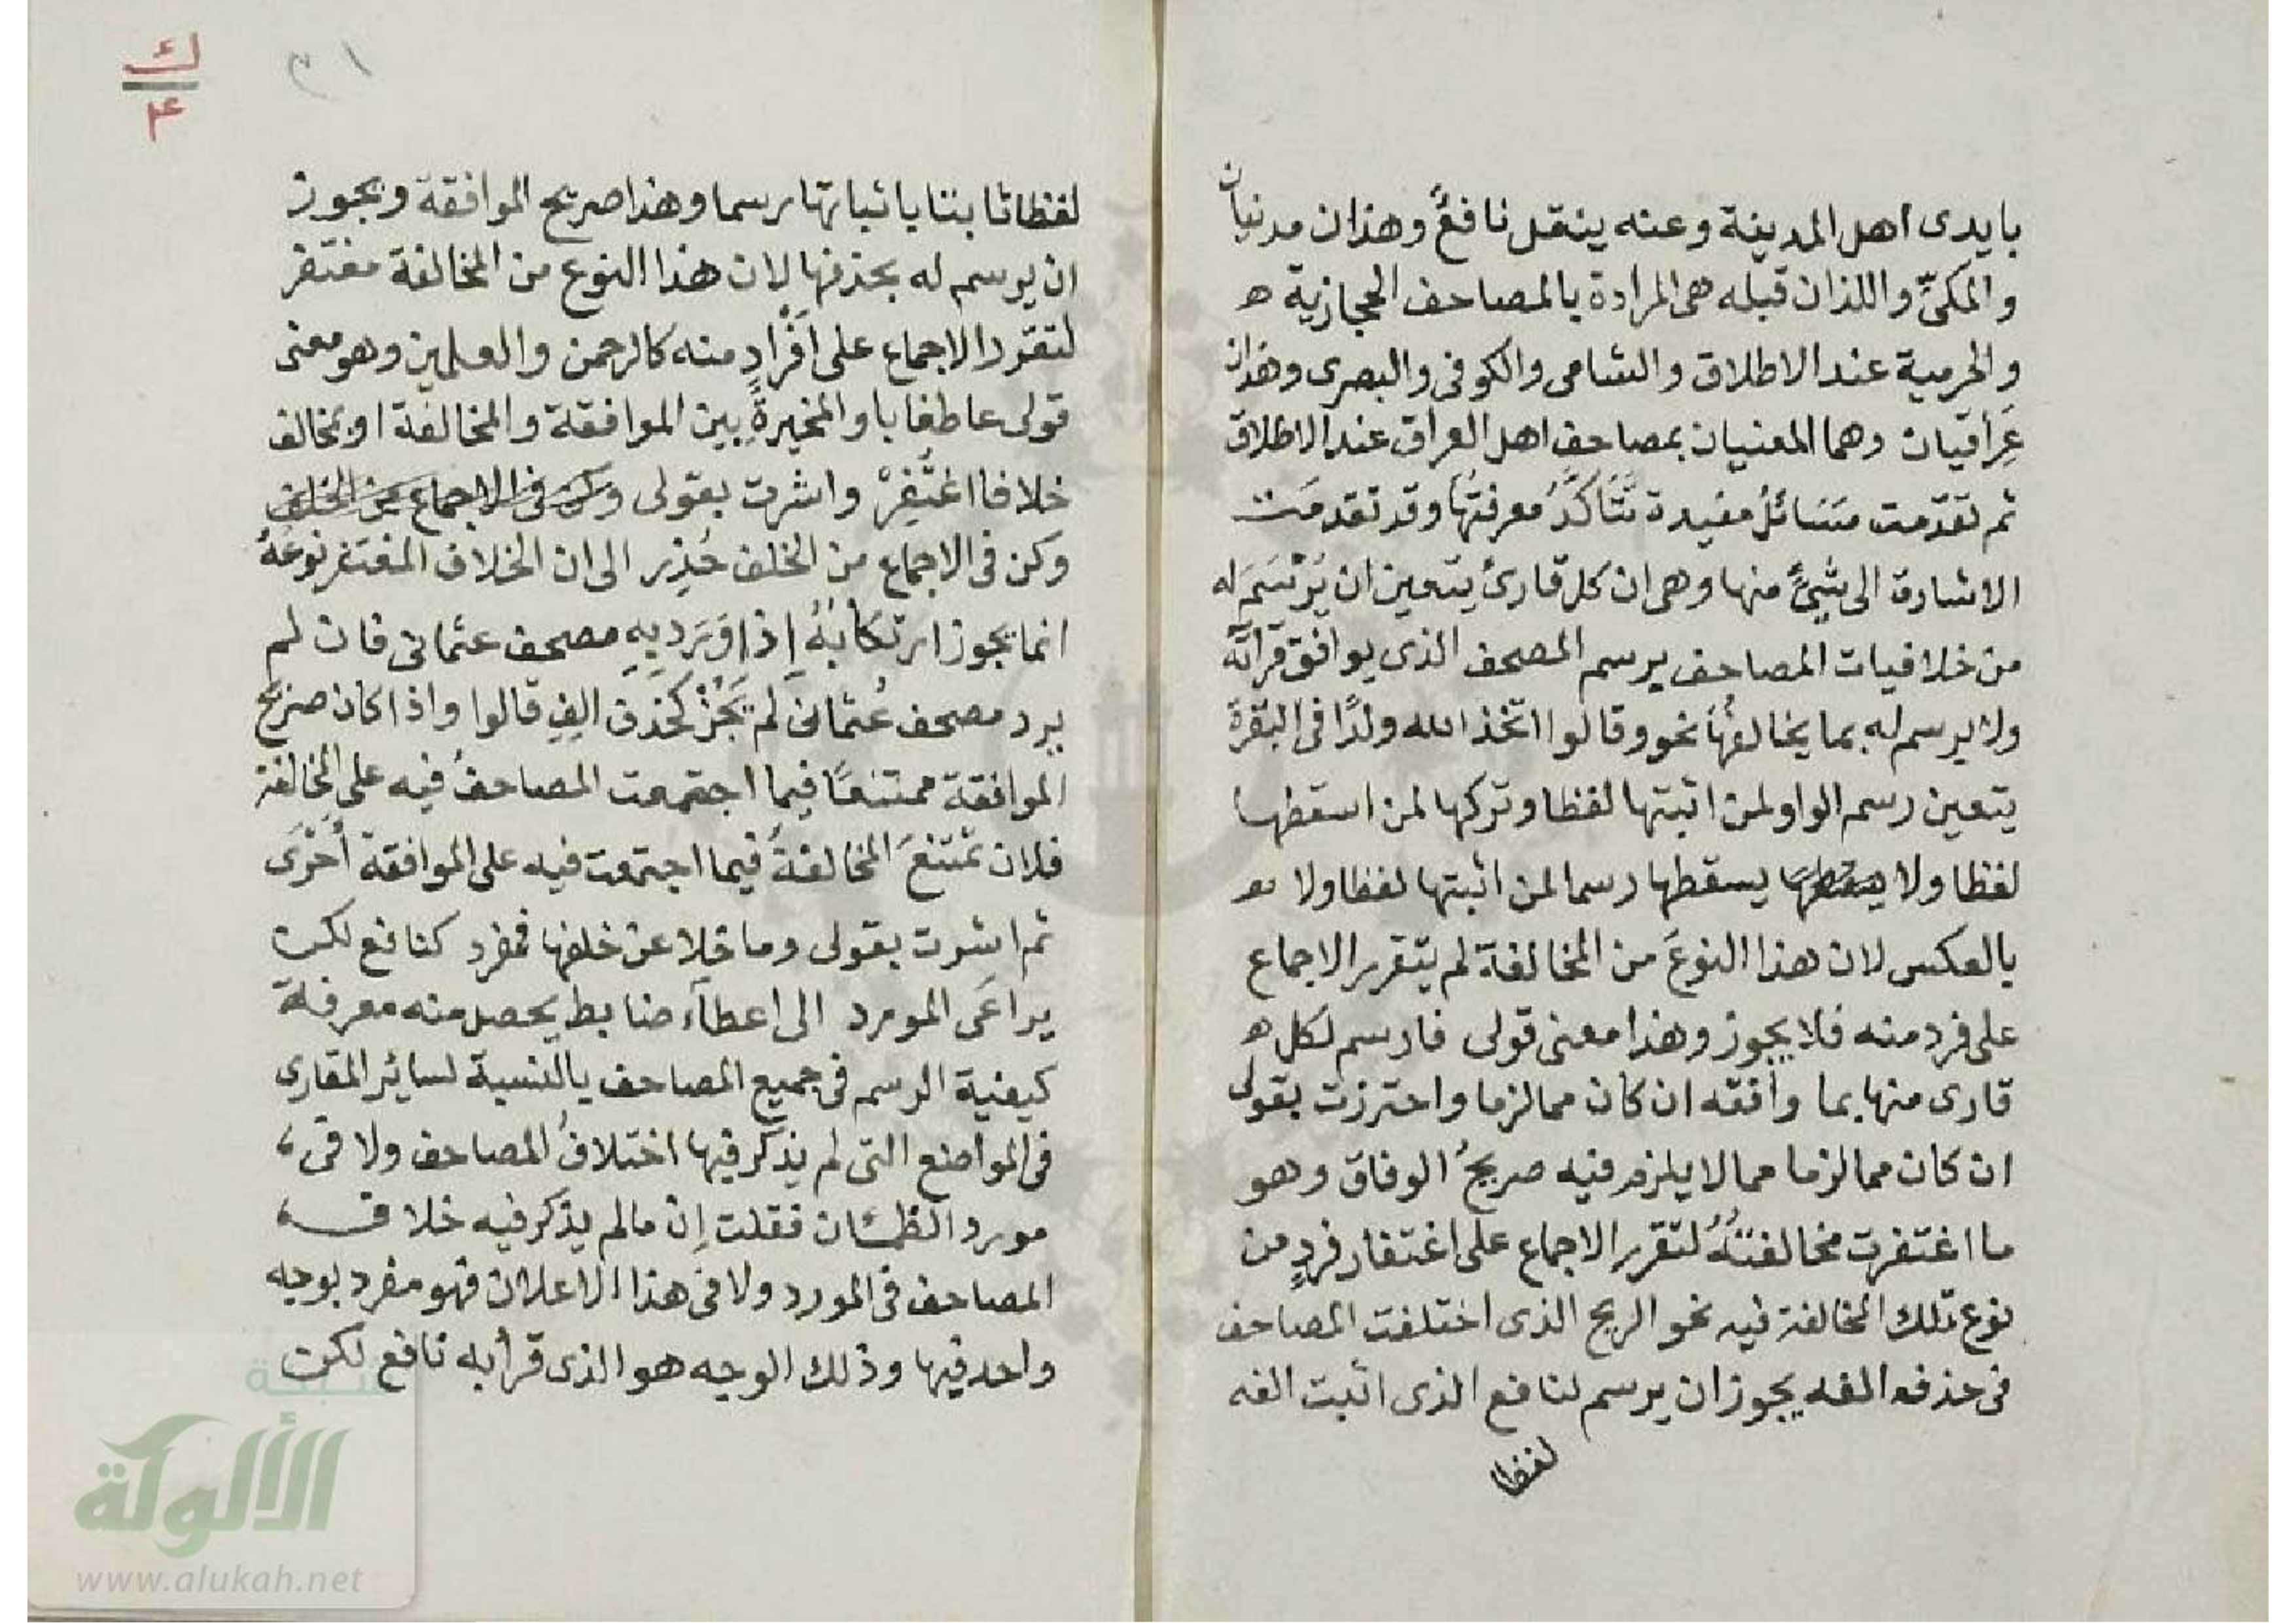 بايدى اهل المدينة وعنه ينقل نافعٌ وهذان مدنيان
والمكىّ واللذان قبله هى المرادة بالمصاحف الحجازية ه
والحرمية عند الاطلاق والشامى والكوفى والبصرى وهذان
عِراقيان وهما المعنيان بمصاحف اهل العراق عند الاطلاق
ثم تقدّمت مَسَائلُ مفيدة تتأكّدُ معرفتُها وقد تقدمَت
الاشارة الى شَىْءٍ منها وهى ان كل قارئ يتعين ان يُرْسَمَ له
من خلافيات المصاحف برسم المصحف الذى يوافق قراته
ولا يرسم له بما يخالفُهَا نحو وقالوا اتخذ الله ولدًا فى البقرة
يتعين رسم الواو لمن اثبتها لفظا وتركها لمن اسقطها
لفظا ولا يسقطها رسما لمن اثبتها لفظا ولا
بالعكس لان هذا النوعَ من المخالفة لم يتقرر الاجماع
على فرد منه فلا يجوز وهذا معنى قولى فارسم لكل ه
قارى منها بما وافقه ان كان مما لزما واحترزت بقولى
ان كان مما لزما مما لا يلزم فيه صريحُ الوفاق وهو
ما اغتفرت مخالفتُهُ لتقرر الاجماع على اغتفار فردٍ من
نوع تلك المخالفة فيه نحو الريح الذى اختلفت المصاحف
فى حذف الفه يجوز ان يرسم لنافع الذى اثبت الفه
لفظا
٣١
ك
٤
لفظا ثابتا باثباتها رسما وهذا صريح الموافقة ويجوز
ان يرسم له بحذفها لان هذا النوع من المخالفة مغتفر
لتقرر الاجماع على اَفْرادٍ منه كالرحمن والعلمين وهو معنى
قولى عاطفا باو المخيرةِ بين الموافقة والمخالفة او يخالف
خلافا اغتُفِرْ واشرت بقولى وكن فى الاجماع من الخلف
وكن فى الاجماع من الخلف حُذِر الى ان الخلاف المغتفر نوعُهُ
انما يجوز ارتكابُهُ اِذا وَرَد بِهِ مصحف عثمانى فان لم
يرد مصحف عُثمانى لم يَجُزْ كحذف الِفِ قالوا واذا كان صريح
الموافقة ممتنعًا فيما اجتمعت المصاحفُ فيه على المخالفة
فلان تمتنعَ المخالفةُ فيما اجتمعت فيه على الموافقة اَحْرَى
ثم اشرت بقولى وما خلا عن خلفها فمفرد كنافع لكن
يراعَى المورد الى اعطاء ضابط يحصل منه معرفة
كيفية الرسم فى جميع المصاحف بالنسبة لسائر المقارى
فى المواضع التى لم يذكر فيها اختلافُ المصاحف ولا فى
مورد الظمئان فقلت اِن ما لم يذكر فيه خلاف
المصاحف فى المورد ولا فى هذا الاعلان فهو مفرد بوجه
واحد فيها وذلك الوجه هو الذى قرأ به نافع لكن
شبكة
الألوكة
www.alukah.net